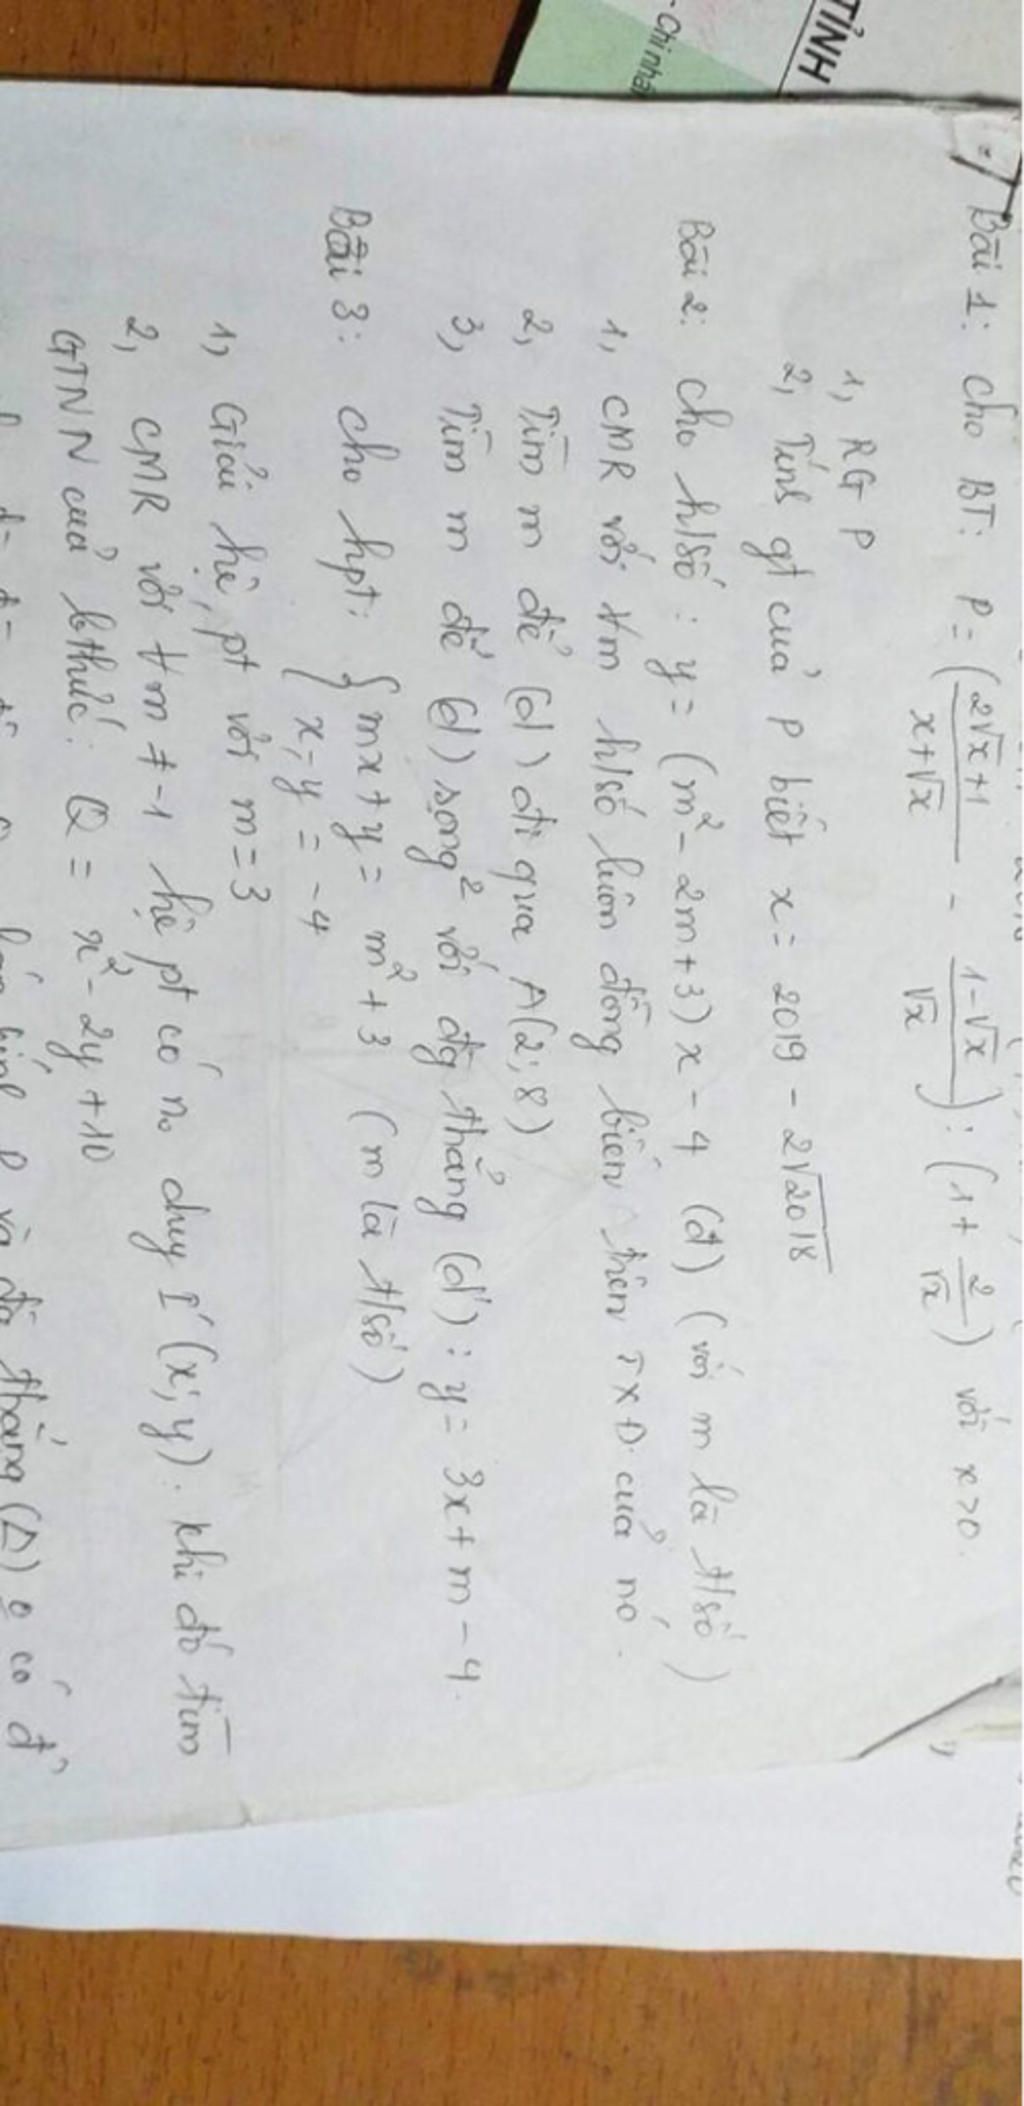 TỈNH
Bài 1: Cho BT: P = (2√x+1 / x+√x - 1-√x / √x) : (1 + 2/√x) với x>0.
1, RG P
2, Tính gt của P biết x = 2019 - 2√2018
Bài 2: Cho h/số : y = (m² - 2m+3)x - 4 (d) (với m là t/số)
1, CMR với ∀m h/số luôn đồng biến trên TXD của nó.
2, Tìm m để (d) đi qua A(2;8)
3, Tìm m để (d) song² với đg thẳng (d') : y = 3x + m - 4.
Bài 3: Cho hpt: { mx + y = m² + 3 (m là t/số)
x - y = -4
1, Giải hệ pt với m=3
2, CMR với ∀m ≠ -1 hệ pt có n₀ duy I' (x;y). Khi đó tìm
GTNN của bthức: Q = x² - 2y + 10
thẳng (Δ) có